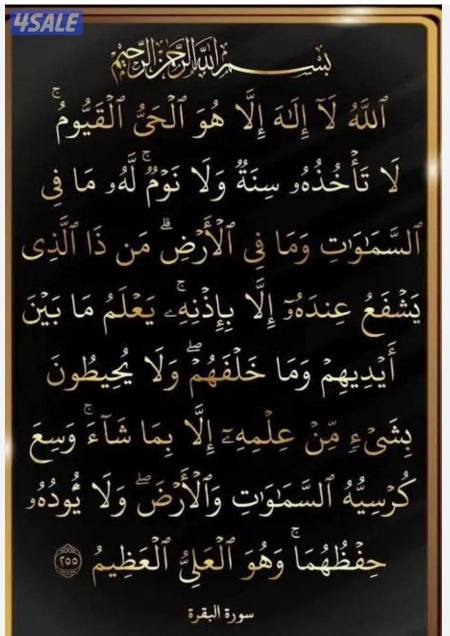 4SALE
بِسْمِ ٱللَّهِ ٱلرَّحْمَٰنِ ٱلرَّحِيمِ
ٱللَّهُ لَآ إِلَٰهَ إِلَّا هُوَ ٱلْحَىُّ ٱلْقَيُّومُ ۚ
لَا تَأْخُذُهُۥ سِنَةٌ وَلَا نَوْمٌ ۚ لَّهُۥ مَا فِى
ٱلسَّمَٰوَٰتِ وَمَا فِى ٱلْأَرْضِ ۗ مَن ذَا ٱلَّذِى
يَشْفَعُ عِندَهُۥٓ إِلَّا بِإِذْنِهِۦ ۚ يَعْلَمُ مَا بَيْنَ
أَيْدِيهِمْ وَمَا خَلْفَهُمْ ۖ وَلَا يُحِيطُونَ
بِشَىْءٍ مِّنْ عِلْمِهِۦٓ إِلَّا بِمَا شَآءَ ۚ وَسِعَ
كُرْسِيُّهُ ٱلسَّمَٰوَٰتِ وَٱلْأَرْضَ ۖ وَلَا يَـُٔودُهُۥ
حِفْظُهُمَا ۚ وَهُوَ ٱلْعَلِىُّ ٱلْعَظِيمُ ٢٥٥
سورة البقرة